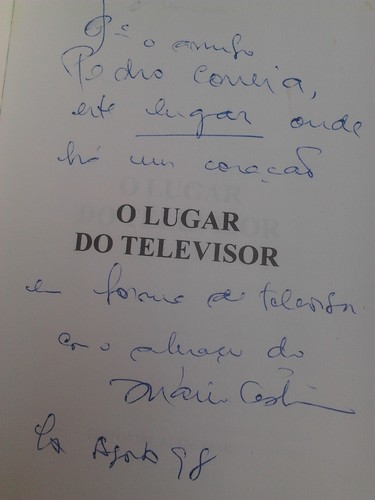 P.ª o amigo
Pedro Correia,
este lugar onde
há um coração
O LUGAR
DO TELEVISOR
em forma de televisor.
Com o abraço do
Mário Castrim
Agosto 98